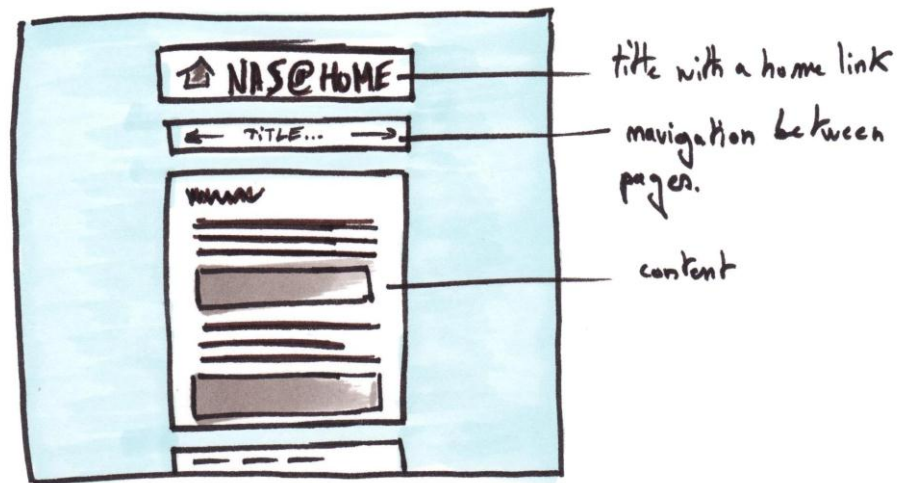 NAS@HOME
title with a home link
← TITLE... →
navigation between
pages.
content